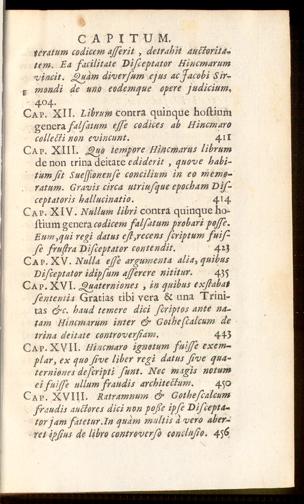 CAPITUM.
teratum codicem asserit, detrahit auctorita-
tem. Ea facilitate Disceptator Hincmarum
vincit. Quàm diversum ejus ac Jacobi Sir-
mondi de uno eodemque opere judicium,
404.
CAP. XII. Librum contra quinque hostium
genera falsatum esse codices ab Hincmaro
collecti non evincunt. 411
CAP. XIII. Quo tempore Hincmarus librum
de non trina deitate ediderit, quove habi-
tum sit Suessionense concilium in eo memo-
ratum. Gravis circa utriusque epocham Dis-
ceptatoris hallucinatio. 414
CAP. XIV. Nullum libri contra quinque ho-
stium genera codicem falsatum probari posse.
Eum, qui regi datus est, recens scriptum fuis-
se frustra Disceptator contendit. 423
CAP. XV. Nulla esse argumenta alia, quibus
Disceptator idipsum asserere nititur. 435
CAP. XVI. Quaterniones, in quibus exstabat
sententia Gratias tibi vera & una Trini-
tas &c. haud temere dici scriptos ante na-
tam Hincmarum inter & Gothescalcum de
trina deitate controversiam. 443
CAP. XVII. Hincmaro ignotum fuisse exem-
plar, ex quo sive liber regi datus sive qua-
terniones descripti sunt. Nec magis notum
ei fuisse ullum fraudis architectum. 450
CAP. XVIII. Ratramnum & Gothescalcum
fraudis auctores dici non posse ipse Discepta-
tor jam fatetur. In quàm multis à vero aber-
ret ipsius de libro controverso conclusio. 456